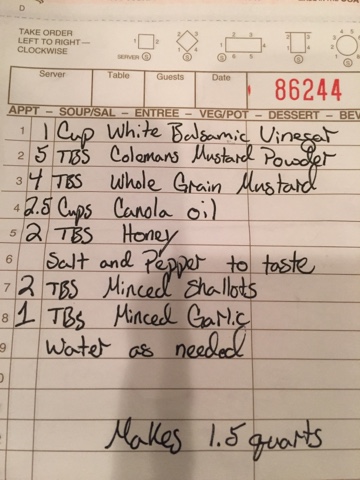 D
TAKE ORDER
LEFT TO RIGHT —
CLOCKWISE
SERVER S
Server Table Guests Date 86244
APPT – SOUP/SAL – ENTREE – VEG/POT – DESSERT – BEV
1 1 Cup White Balsamic Vinegar
2 5 TBS Colemans Mustard Powder
3 4 TBS Whole Grain Mustard
4 2.5 Cups Canola oil
5 2 TBS Honey
6 Salt and Pepper to taste
7 2 TBS Minced Shallots
8 1 TBS Minced Garlic
9 Water as needed
Makes 1.5 quarts